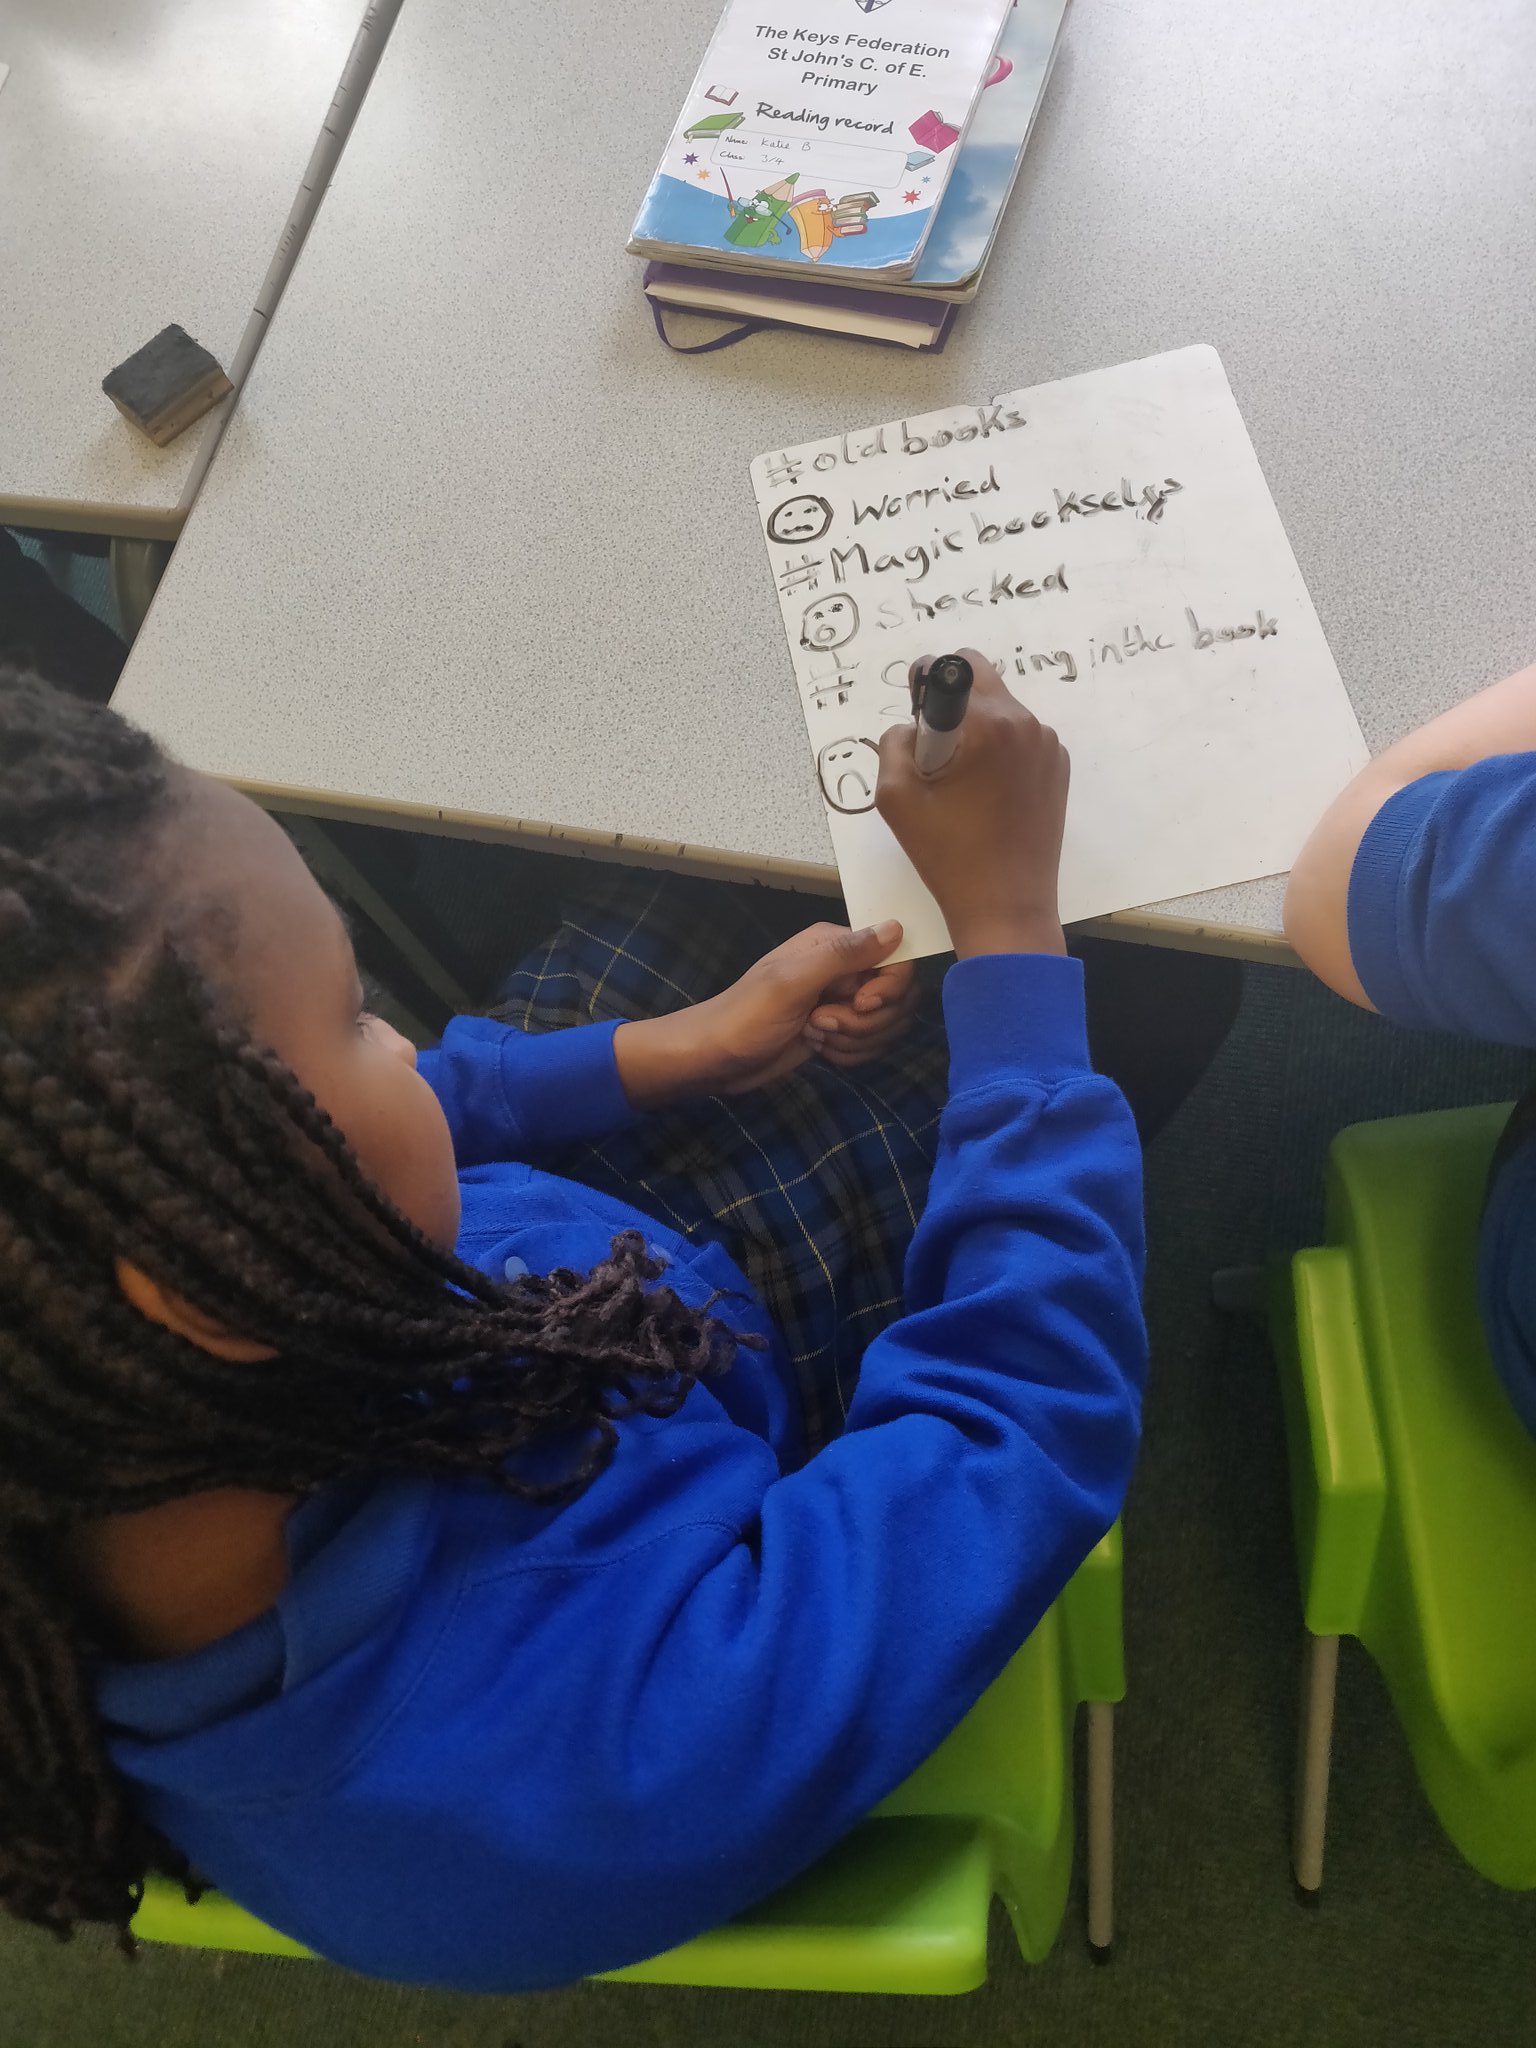 The Keys Federation
St John's C. of E.
Primary
Reading record
Name: Katie B
Class: 3/4
# old books
Worried
# Magic
Shocked
# in the book